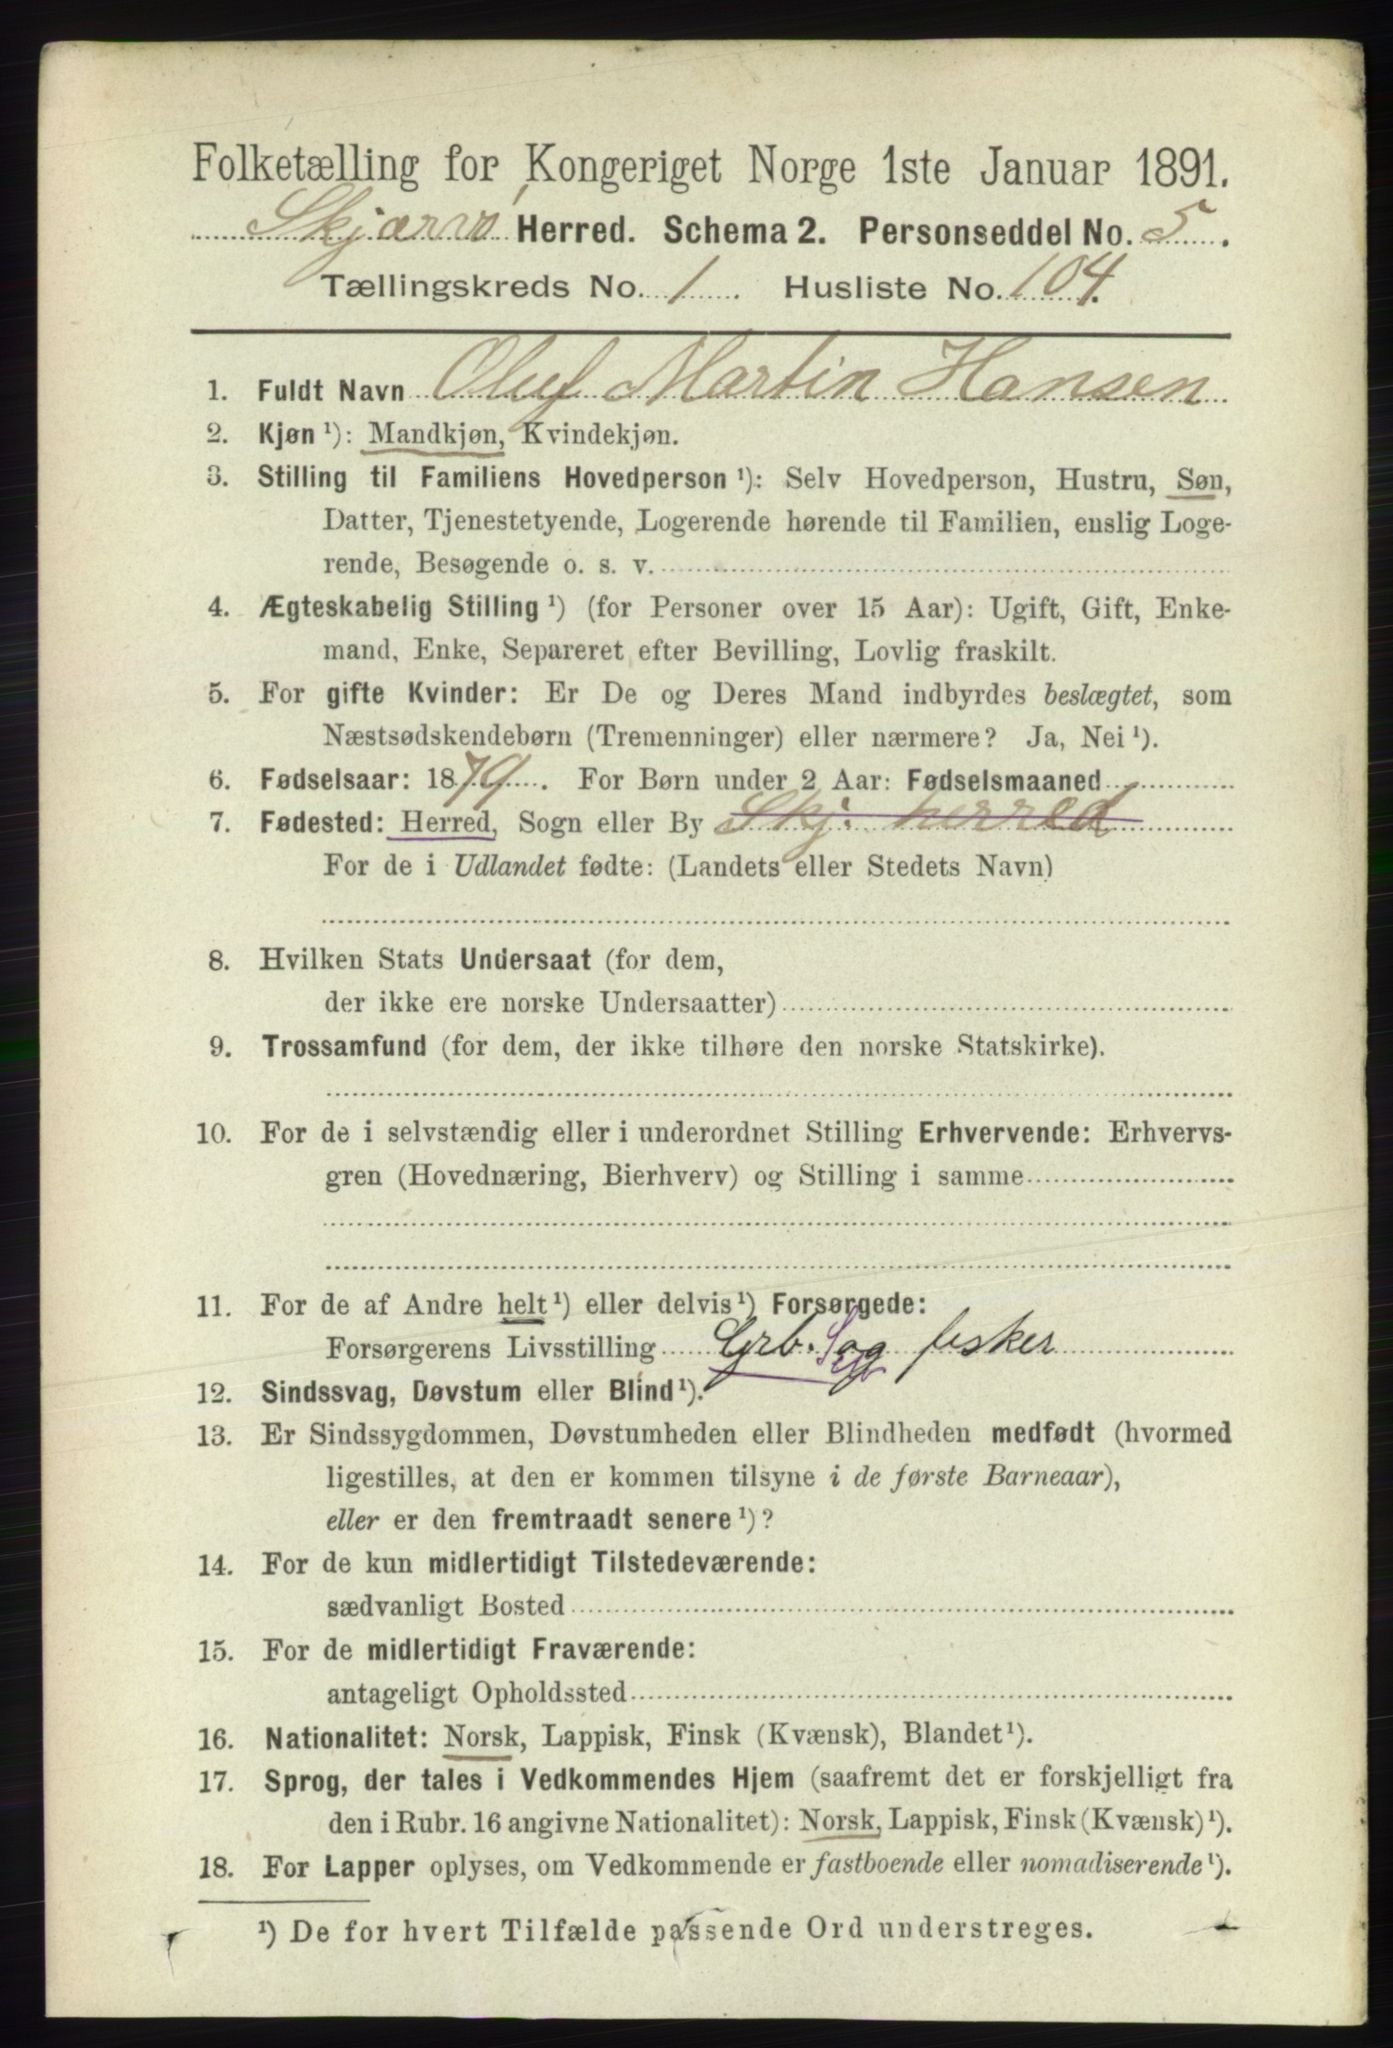 Folketælling for Kongeriget Norge 1ste Januar 1891.
Skjærvø Herred. Schema 2. Personseddel No. 5.
Tællingskreds No. 1. Husliste No. 104.
1. Fuldt Navn Oluf Martin Hansen
2. Kjøn ¹): Mandkjøn, Kvindekjøn.
3. Stilling til Familiens Hovedperson ¹): Selv Hovedperson, Hustru, Søn,
Datter, Tjenestetyende, Logerende hørende til Familien, enslig Loge-
rende, Besøgende o. s. v.
4. Ægteskabelig Stilling ¹) (for Personer over 15 Aar): Ugift, Gift, Enke-
mand, Enke, Separeret efter Bevilling, Lovlig fraskilt.
5. For gifte Kvinder: Er De og Deres Mand indbyrdes beslægtet, som
Næstsødskendebørn (Tremenninger) eller nærmere? Ja, Nei ¹).
6. Fødselsaar: 1879. For Børn under 2 Aar: Fødselsmaaned
7. Fødested: Herred, Sogn eller By Skj. herred
For de i Udlandet fødte: (Landets eller Stedets Navn)
8. Hvilken Stats Undersaat (for dem,
der ikke ere norske Undersaatter)
9. Trossamfund (for dem, der ikke tilhøre den norske Statskirke).
10. For de i selvstændig eller i underordnet Stilling Erhvervende: Erhvervs-
gren (Hovednæring, Bierhverv) og Stilling i samme
11. For de af Andre helt ¹) eller delvis ¹) Forsørgede:
Forsørgerens Livsstilling Grb. og fisker
12. Sindssvag, Døvstum eller Blind ¹).
13. Er Sindssygdommen, Døvstumheden eller Blindheden medfødt (hvormed
ligestilles, at den er kommen tilsyne i de første Barneaar),
eller er den fremtraadt senere ¹)?
14. For de kun midlertidigt Tilstedeværende:
sædvanligt Bosted
15. For de midlertidigt Fraværende:
antageligt Opholdssted
16. Nationalitet: Norsk, Lappisk, Finsk (Kvænsk), Blandet ¹).
17. Sprog, der tales i Vedkommendes Hjem (saafremt det er forskjelligt fra
den i Rubr. 16 angivne Nationalitet): Norsk, Lappisk, Finsk (Kvænsk) ¹).
18. For Lapper oplyses, om Vedkommende er fastboende eller nomadiserende ¹).
¹) De for hvert Tilfælde passende Ord understreges.